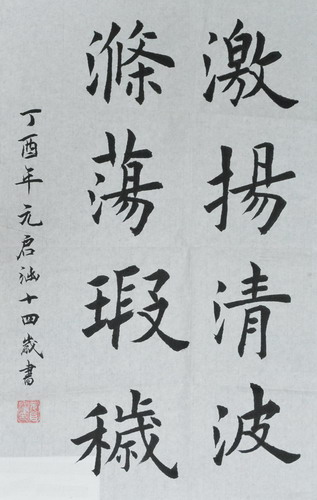 激揚清波
滌蕩瑕穢
丁酉年元启㳒十四歲書